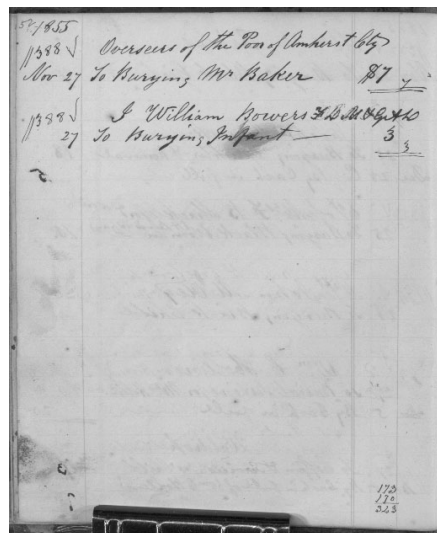 1855
388 Overseers of the Poor of Amherst Cty
Nov 27 To Burying Mr Baker $7
7
388 William Bowers
27 To Burying Infant — 3
3
173
170
343